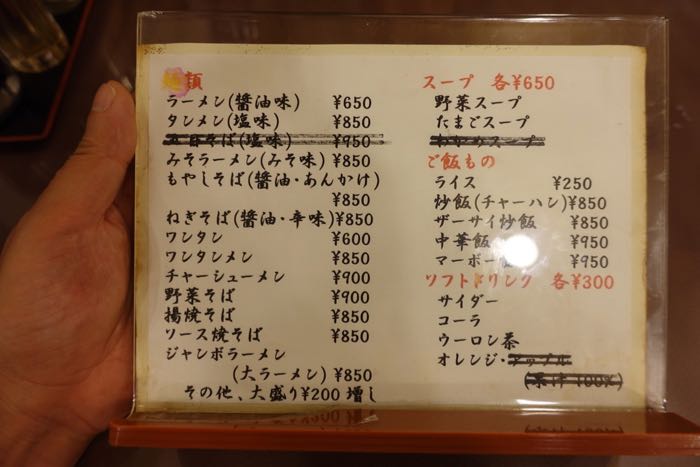 麺類
ラーメン(醤油味) ¥650
タンメン(塩味) ¥850
五目そば(塩味) ¥950
みそラーメン(みそ味) ¥850
もやしそば(醤油・あんかけ)
¥850
ねぎそば(醤油・辛味) ¥850
ワンタン ¥600
ワンタンメン ¥850
チャーシューメン ¥900
野菜そば ¥900
揚焼そば ¥850
ソース焼そば ¥850
ジャンボラーメン
(大ラーメン) ¥850
その他、大盛り¥200増し
スープ 各¥650
野菜スープ
たまごスープ
わかめスープ
ご飯もの
ライス ¥250
炒飯(チャーハン) ¥850
ザーサイ炒飯 ¥850
中華飯 ¥950
マーボー ¥950
ソフトドリンク 各¥300
サイダー
コーラ
ウーロン茶
オレンジ・アップル
(果汁100%)